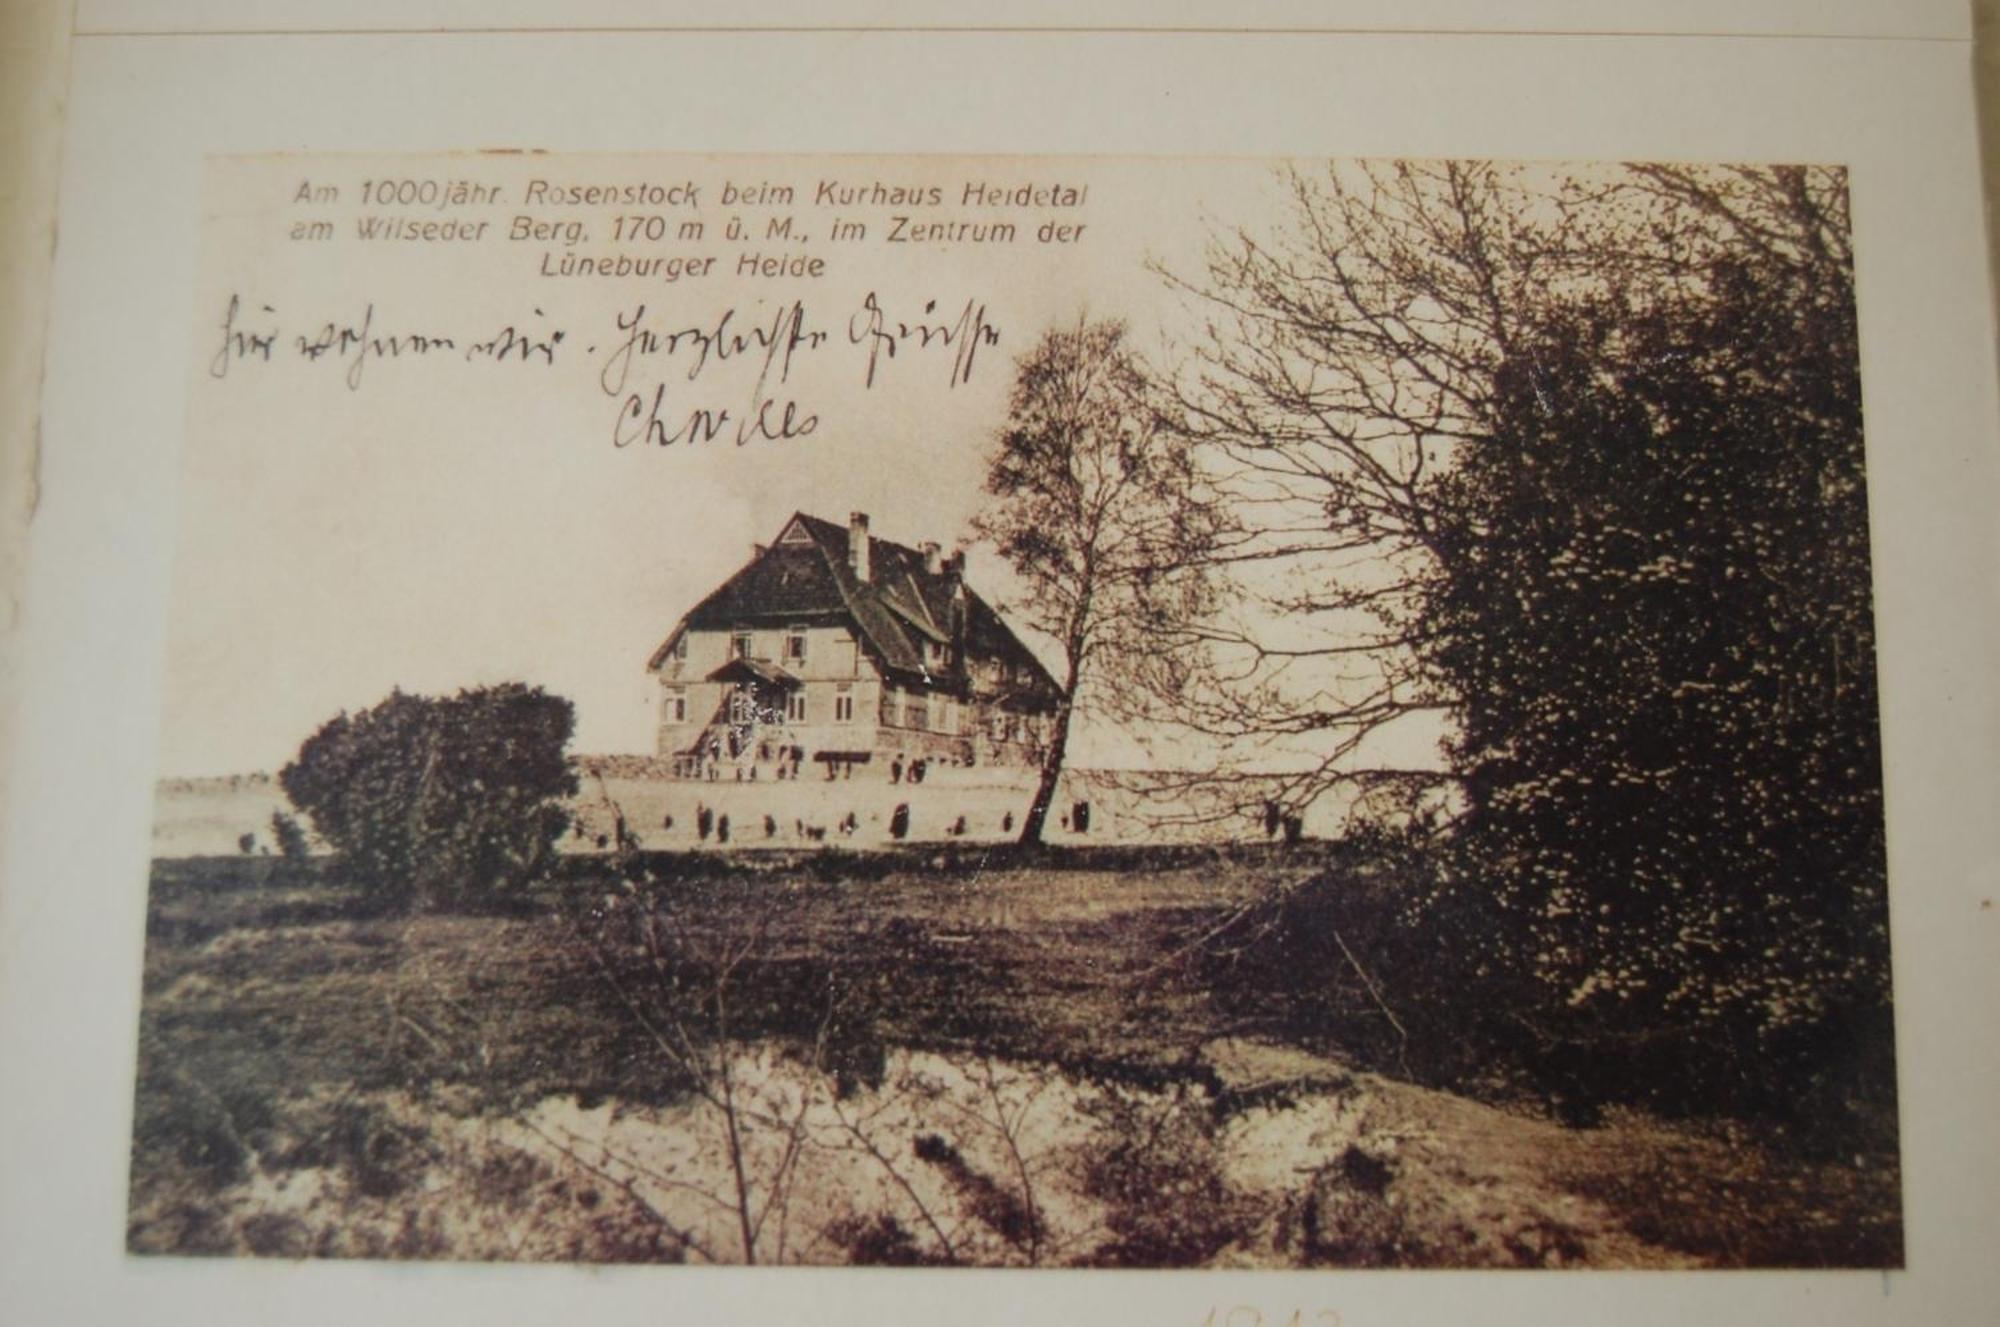 Am 1000jähr. Rosenstock beim Kurhaus Heidetal
am Wilseder Berg, 170 m ü. M., im Zentrum der
Lüneburger Heide
hier wohnen wir. Herzlichste Grüsse
Charles